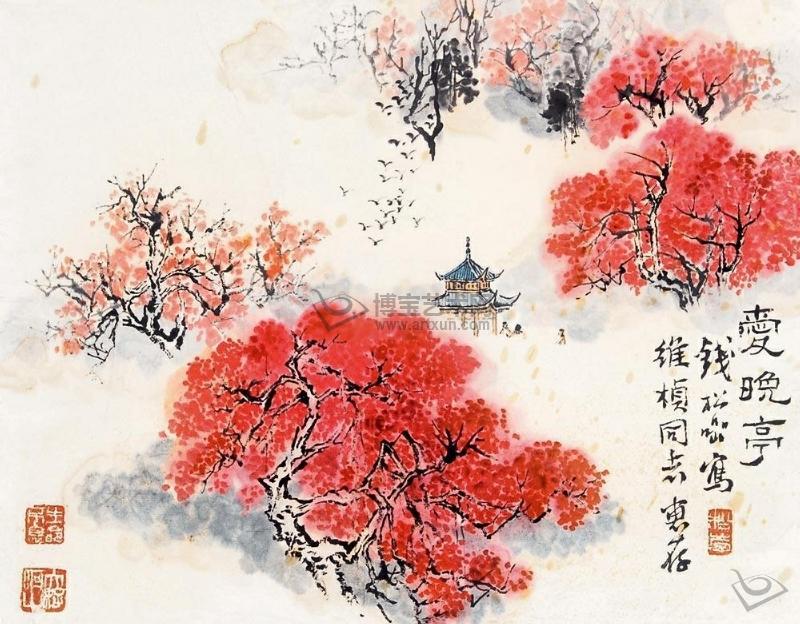 愛晚亭
錢松喦寫
維楨同志惠存
博宝艺术网
www.artxun.com